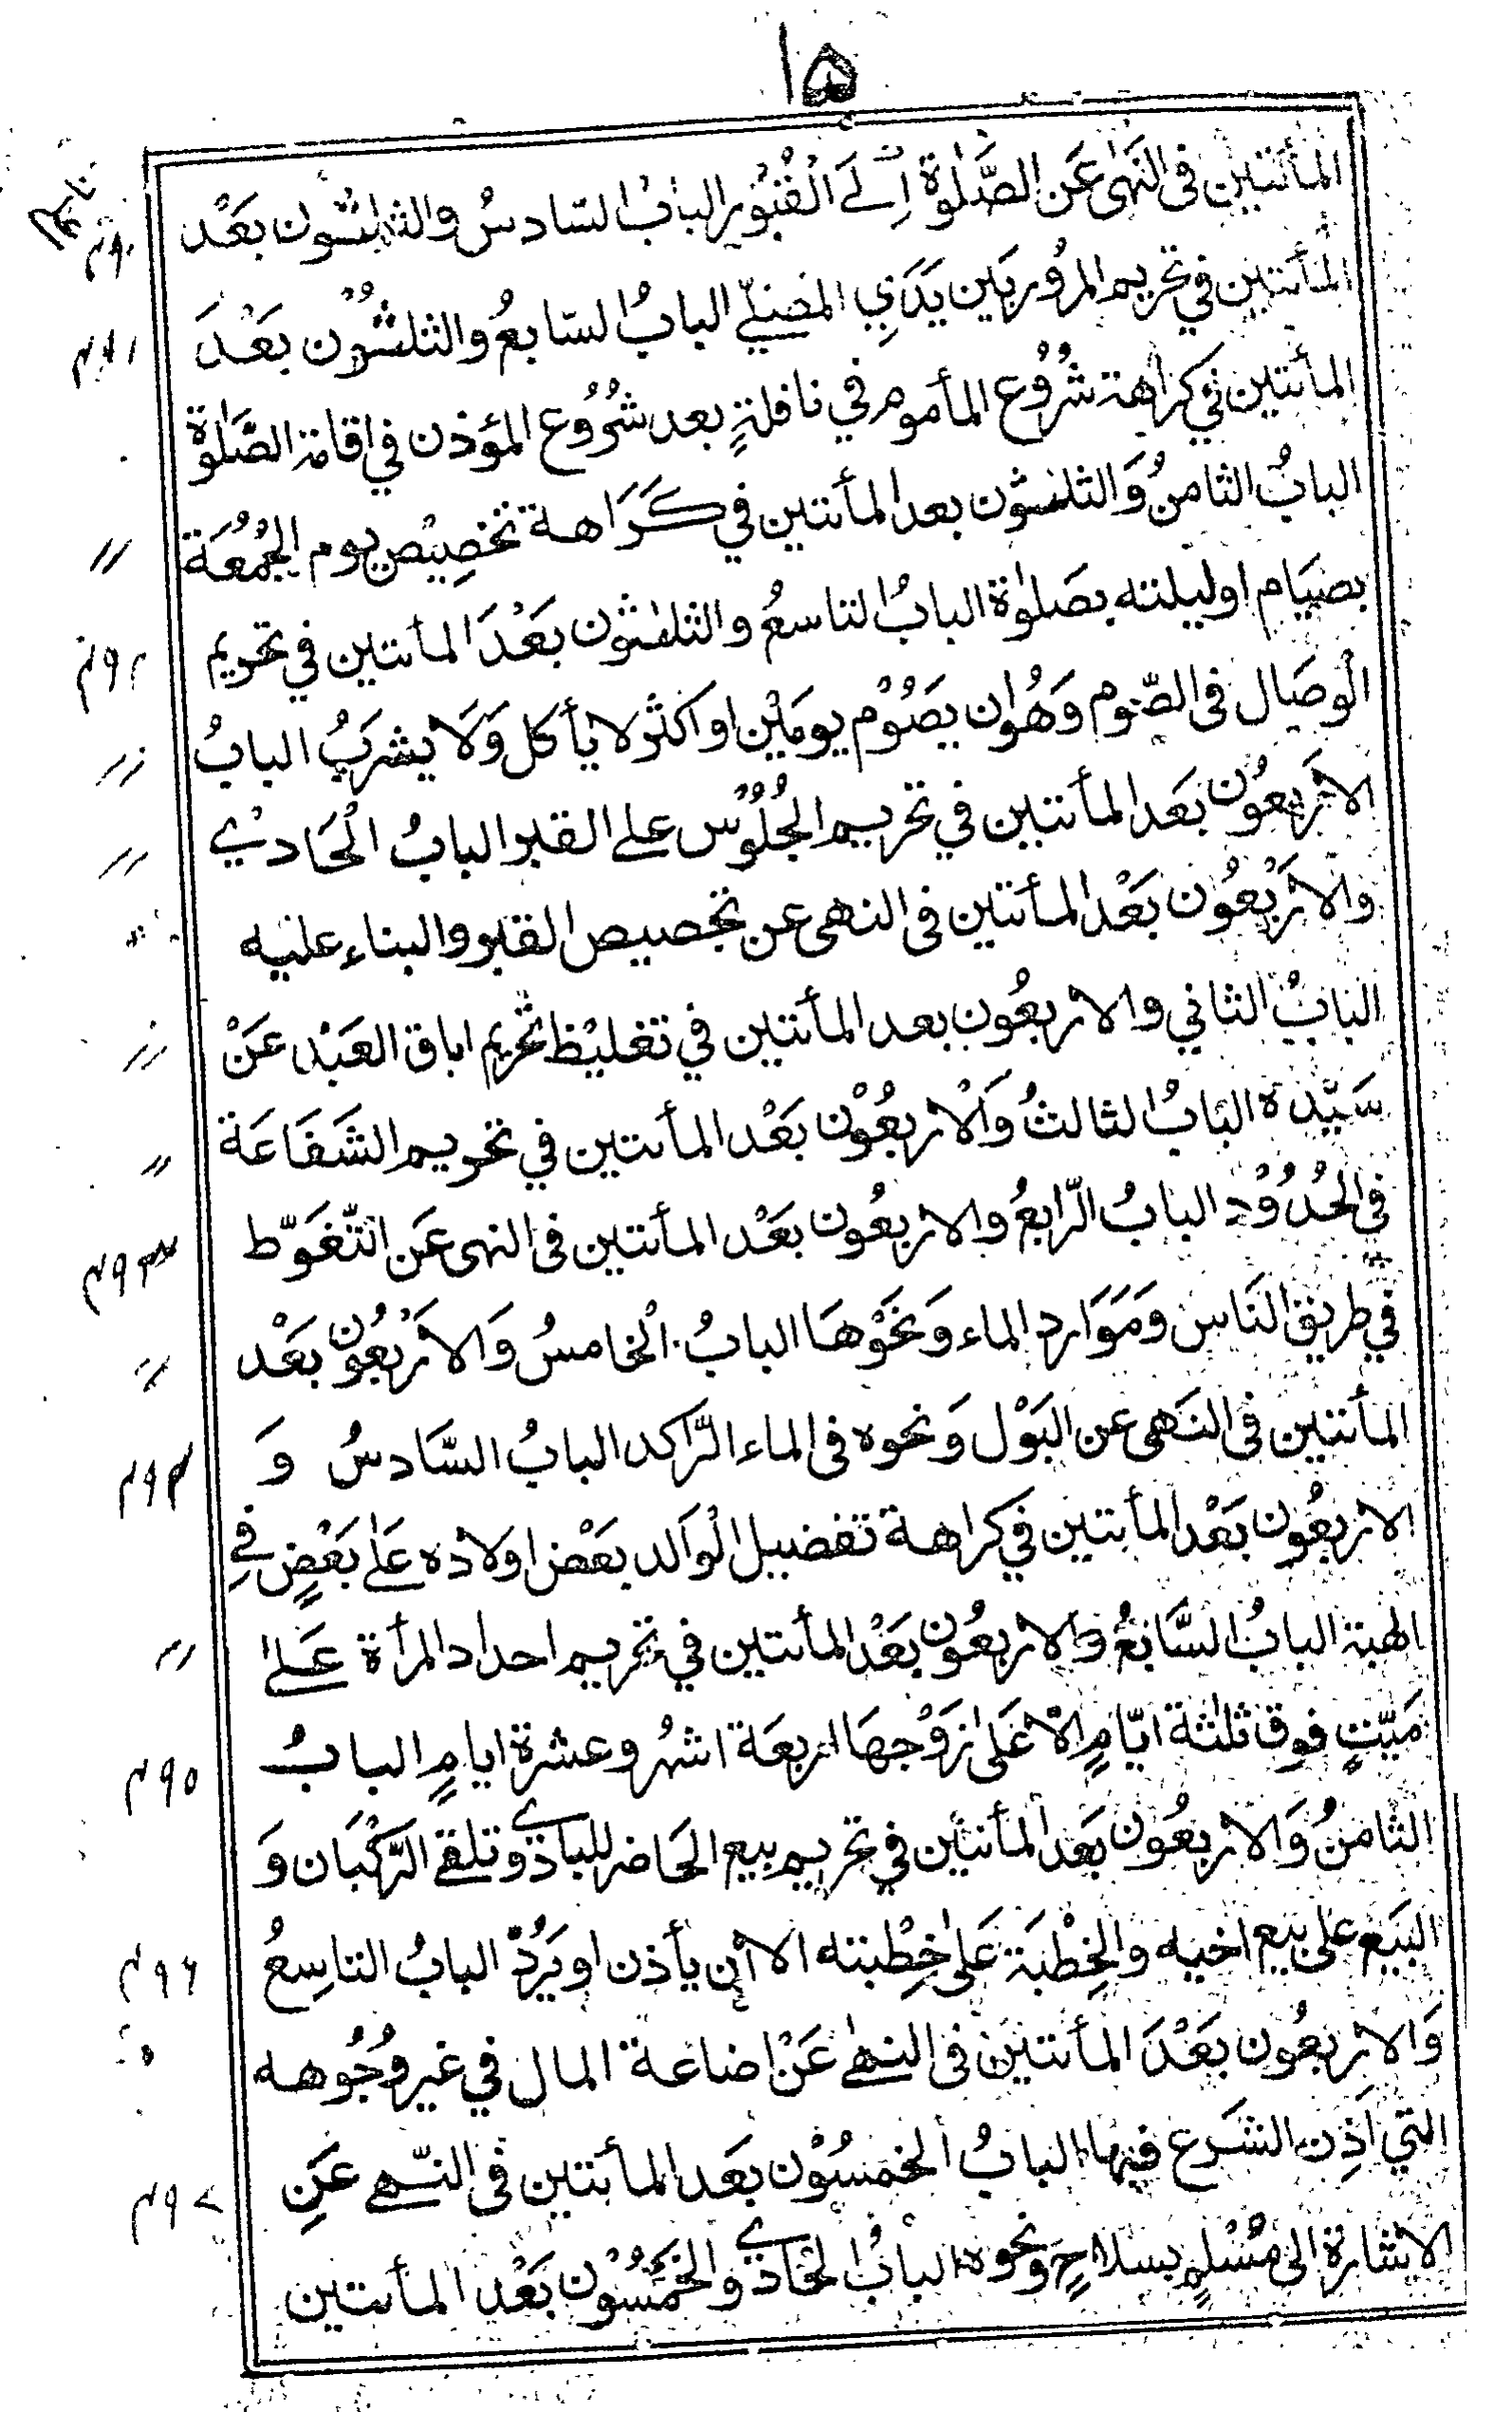 ۱۵
المأتين فى النهى عن الصَّلٰوة اِلَى الْقُبُوْر البابُ السّادسُ والثلٰثون بعْد
المأتين في تحريم المرُور بَين يَدَىِ المصلّے البابُ السّابعُ والثلٰثوْن بَعْدَ
المأتين في كراهة شُرُوْع المأموم في نافلةٍ بعد شُرُوْع المؤذن في اقامة الصَّلٰوة
البابُ الثامنُ وَالثلٰثون بعد المأتين في كَرَاهة تخصِيْص يوم الجُمُعَة
بصيَام او ليلته بصَلٰوة البابُ التاسعُ والثلٰثون بَعْدَ المأتين في تحريم
الْوصَال فى الصّوم وَهُو ان يصَوْم يومَيْن او اكثر لا يأكل وَلَا يشربُ البابُ
الاربعُون بَعد المأتين في تحريم الجُلُوْس على القبر البابُ الْحَادىْ
والاربْعُون بَعْد المأتين فى النهى عن تجصيص القبر والبناء عليه
البابُ الثاني والاربعُون بعد المأتين في تغليْظ تحريم اباق العَبْد عَنْ
سَيّده البابُ الثالثُ وَالْاربعُوْن بَعْد المأتين في تحريم الشَفَاعَة
فى الحُدُوْد البابُ الرّابعُ والاربعُون بَعْد المأتين فى النهى عَن التّغَوّط
في طريق النَاس وَمَوَارد الماء وَنَحْوهَا البابُ الْخامسُ وَالاربْعُون بَعْد
المأتين فى النَهى عن البَوْل وَنحوه فى الماء الرّاكد البابُ السَّادسُ وَ
الاربعُون بَعْد المأتين في كراهة تفضيل الْوالد بعَض اولاده عَلٰى بَعْضٍ فِے
الهبة البابُ السَّابعُ وَالاربعُون بَعْد المأتين في تحريم احداد المرأة عَلىٰ
مَيّتٍ فوق ثلٰثة ايّامٍ الّا عَلىٰ زَوْجهَا اربعَة اشهُر وعشرة ايامٍ البابُ
الثامنُ وَالاربعُون بَعد المأتين في تحريم بيع الحَاضر للبادے وتلقے الرّكْبَان وَ
البَيَع على بيع اخيه والخِطْبَة عَلىٰ خِطْبته الا اَن يأذن او يَرُدّ البابُ التاسِعُ
وَالاربعُون بَعْدَ المأتين فى النهٰى عَنْ اضاعة المال في غير وُجُوهه
التي اَذِن الشَرع فيها البابُ الخمسُوْن بَعد المأتين فى النّهے عَنِ
الاشارة الى مُسْلمٍ بسلاحٍ ونحوه البابُ الحادے والخَمْسُوْن بَعْد المأتين